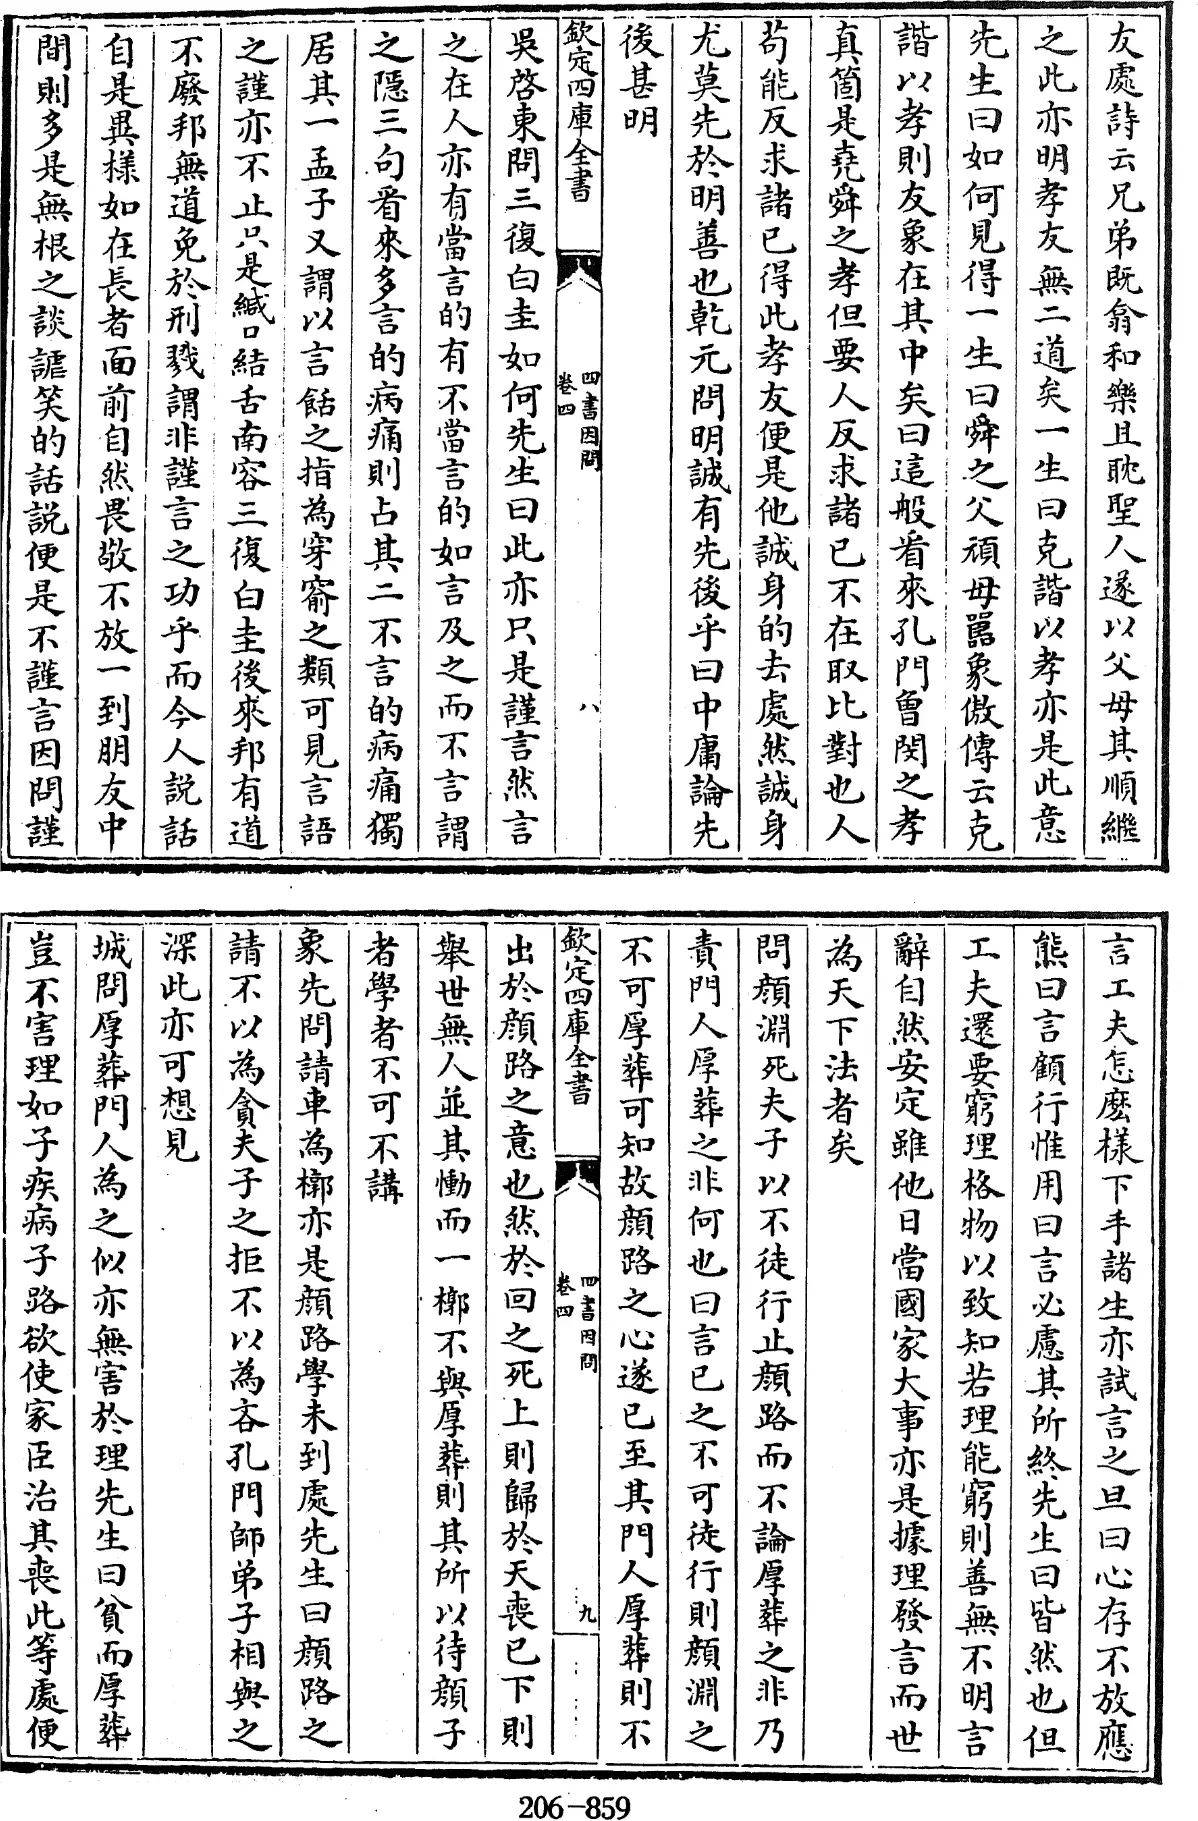 友處詩云兄弟既翕和樂且耽聖人遂以父母其順繼
之此亦明孝友無二道矣一生曰克諧以孝亦是此意
先生曰如何見得一生曰舜之父頑母嚚象傲傳云克
諧以孝則友象在其中矣曰這般看來孔門曾閔之孝
真箇是堯舜之孝但要人反求諸已不在取比對也人
苟能反求諸已得此孝友便是他誠身的去處然誠身
尤莫先於明善也乾元問明誠有先後乎曰中庸論先
後甚明
欽定四庫全書
四書因問
卷四
八
吳啓東問三復白圭如何先生曰此亦只是謹言然言
之在人亦有當言的有不當言的如言及之而不言謂
之隱三句看來多言的病痛則占其二不言的病痛獨
居其一孟子又謂以言餂之指為穿窬之類可見言語
之謹亦不止只是緘口結舌南容三復白圭後來邦有道
不廢邦無道免於刑戮謂非謹言之功乎而今人説話
自是異樣如在長者面前自然畏敬不放一到朋友中
間則多是無根之談謔笑的話説便是不謹言因問謹
言工夫怎麽樣下手諸生亦試言之旦曰心存不放應
熊曰言顧行惟用曰言必慮其所終先生曰皆然也但
工夫還要窮理格物以致知若理能窮則善無不明言
辭自然安定雖他日當國家大事亦是據理發言而世
為天下法者矣
問顔淵死夫子以不徒行止顔路而不論厚葬之非乃
責門人厚葬之非何也曰言已之不可徒行則顔淵之
不可厚葬可知故顔路之心遂已至其門人厚葬則不
欽定四庫全書
四書因問
卷四
九
出於顔路之意也然於回之死上則歸於天喪已下則
舉世無人並其慟而一槨不與厚葬則其所以待顔子
者學者不可不講
象先問請車為槨亦是顔路學未到處先生曰顔路之
請不以為貪夫子之拒不以為吝孔門師弟子相與之
深此亦可想見
城問厚葬門人為之似亦無害於理先生曰貧而厚葬
豈不害理如子疾病子路欲使家臣治其喪此等處便
206-859